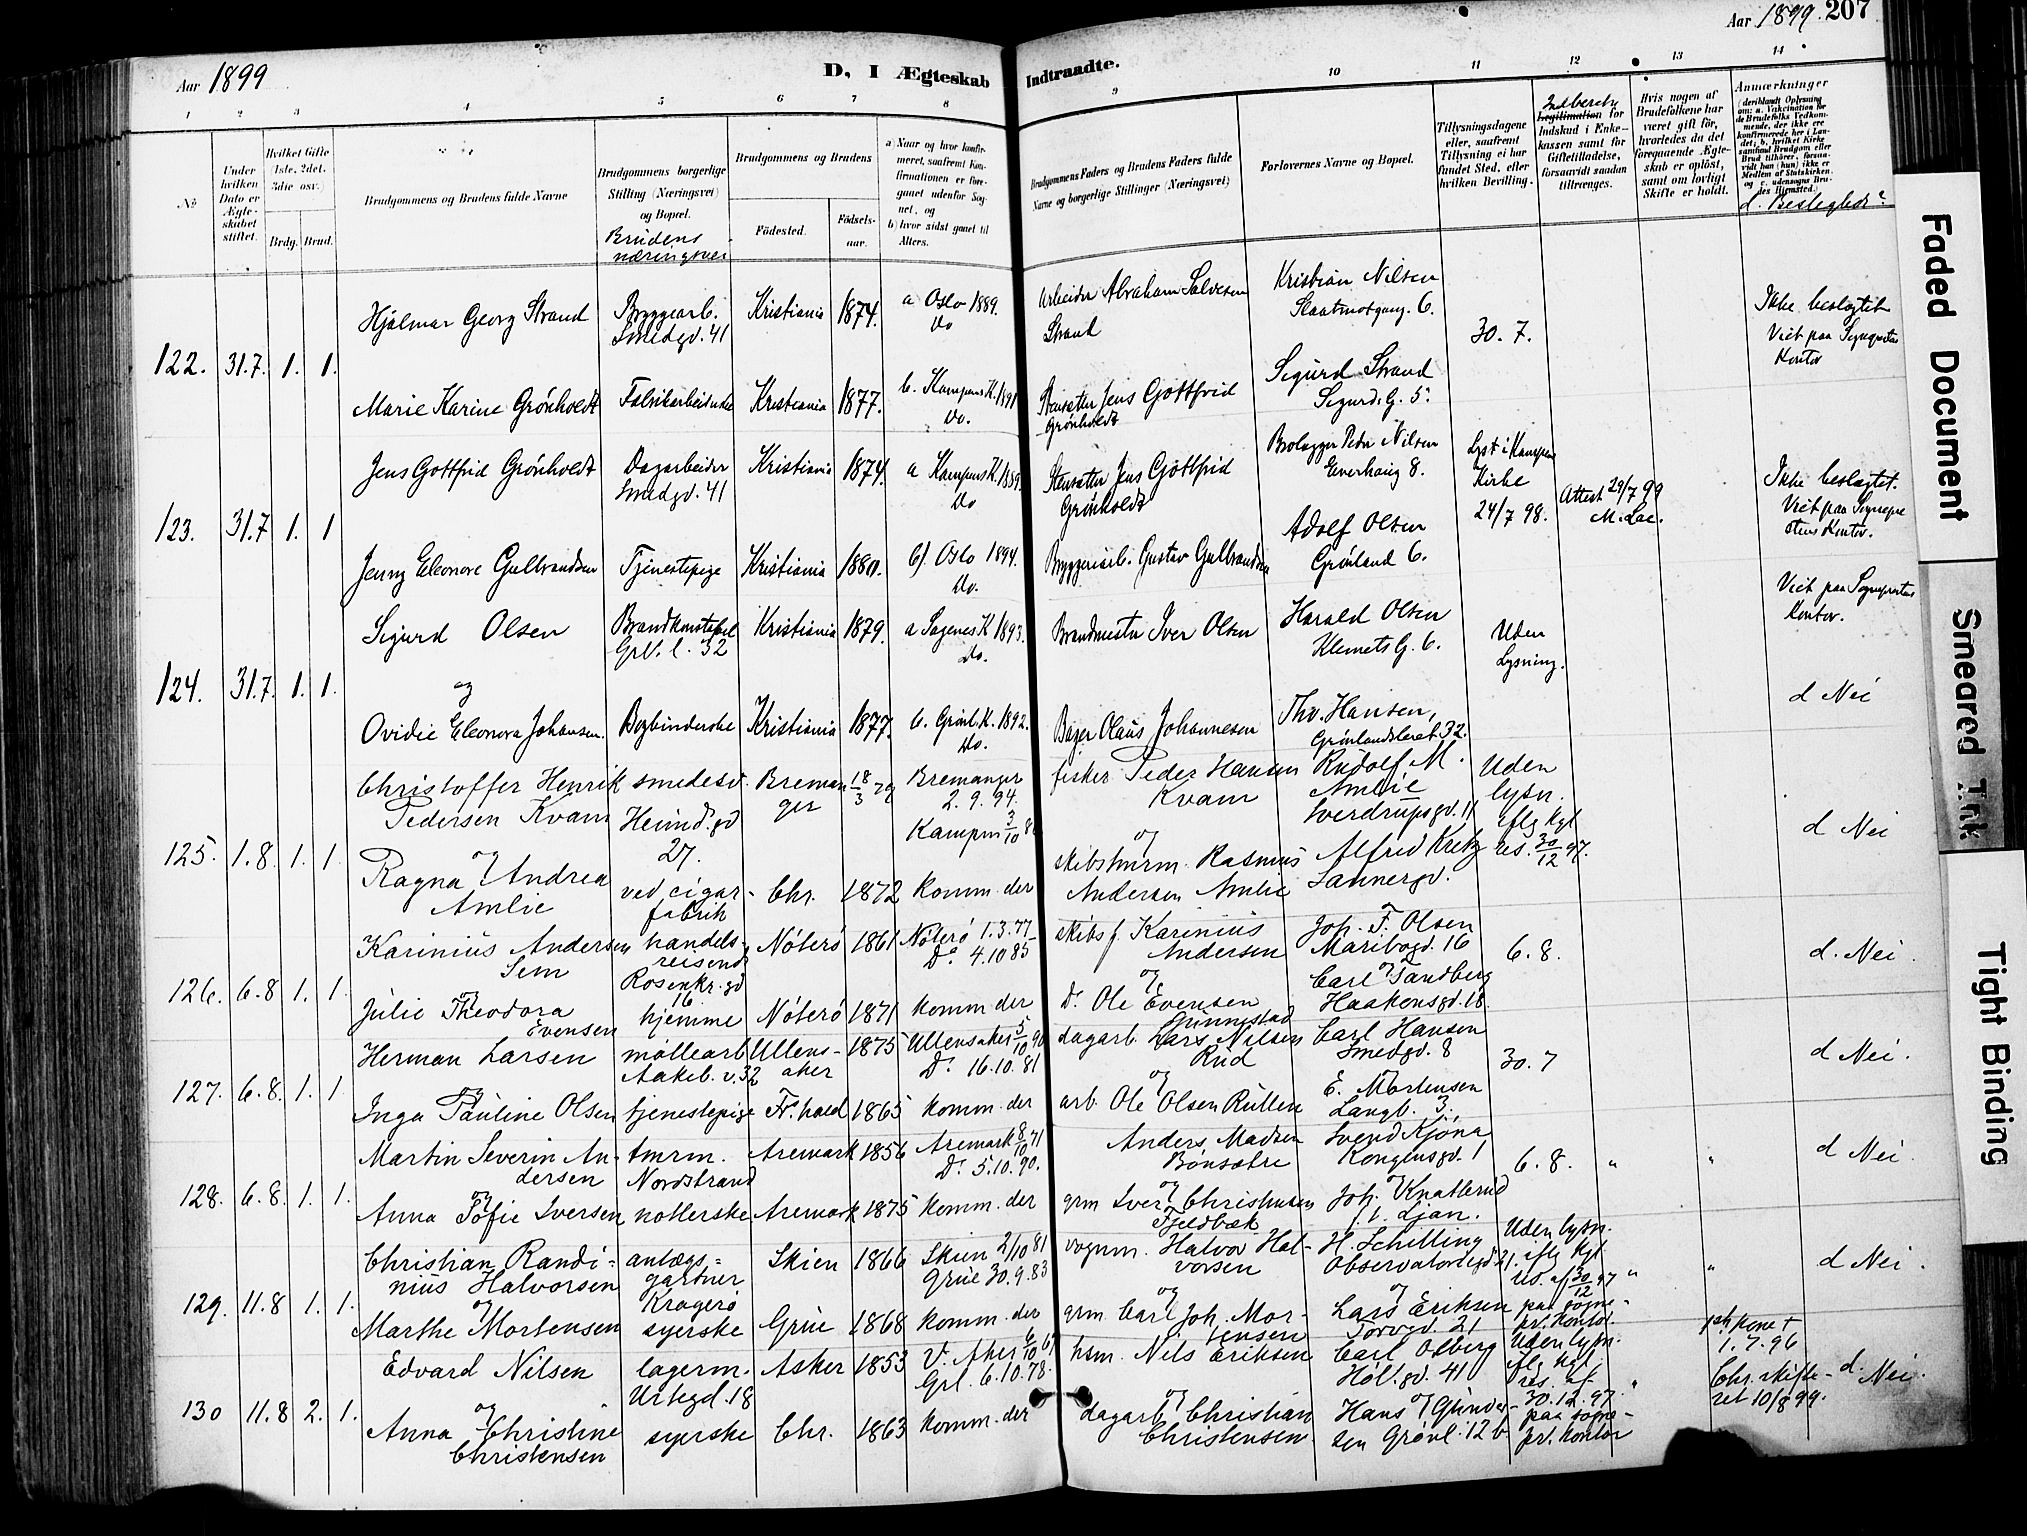 Aar 1899
D, I Ægteskab Indtraadte.
Aar 1899. 207
1 2 3 4 5 6 7 8 9 10 11 12 13 14
No
Under hvilken Dato er Ægteskabet stiftet.
Hvilket Gifte (1ste, 2det, 3die osv.)
Brdg. Brud.
Brudgommens og Brudens fulde Navne
Brudgommens borgerlige Stilling (Næringsvei) og Bopæl.
Brudens næringsvei
Brudgommens og Brudens
Fødested. Fødselsaar.
a) Naar og hvor konfirmeret, saafremt Konfirmationen er foregaaet udenfor Sognet, og
b) hvor sidst gaaet til Alters.
Brudgommens Faders og Brudens Faders fulde Navne og borgerlige Stillinger (Næringsvei)
Forlovernes Navne og Bopæl.
Tillysningsdagene eller, saafremt Tillysning ei har fundet Sted, efter hvilken Bevilling.
Legitimation for Indskud i Enkekassen samt for Giftetilladelse, forsaavidt saadan tiltrænges.
Hvis nogen af Brudefolkene har været gift før, hvorledes da det foregaaende Ægteskab er opløst, samt om lovligt Skifte er holdt.
Anmærkninger
d. Beslegtede?
122. 31.7. 1. 1.
Hjalmar Georg Strand
Bryggearb. Smedgd. 41
Kristiania 1874.
a Oslo 1889. do
Arbeider Abraham Salvesen Strand
Kristian Nilsen
30. 7.
Ikke beslægtet
Viet paa Sogneprestens Kontor
Marie Karine Grønholdt
Fabrikarbeiderske
Kristiania 1877.
b. Kampens K. 1891 do.
Stensætter Jens Gottfrid Grønholdt
Sigurd Strand
Sigurds G. 5.
123. 31.7 1. 1
Jens Gottfrid Grønholdt
Dagarbeider Smedgd. 41
Kristiania 1874.
a Kampens K. 1889. do
Stensætter Jens Gottfrid Grønholdt
Brolægger Peder Nilsen
Enerhaug 8.
Lyst i Kampen Kirke 24/7 98.
Attest 29/7 99
Ikke beslægtet.
Viet paa Sogneprestens Kontor.
Jenny Eleonore Gulbrandsen
Tjenestepige
Kristiania 1880.
b). Oslo 1894. do.
Bryggeriarb. Gustav Gulbrandsen
Adolf Olsen
Grønland 6.
124. 31.7. 1. 1.
Sigurd Olsen
Brandkonstabel Grl. l. 32
Kristiania 1879.
a Sagenes K 1893. do.
Brandmester Iver Olsen
Harald Olsen
Klemets G. 6.
Uden Lysning.
Viet paa Sogneprestens Kontor.
d Nei
og
Ovidie Eleonora Johansen.
Bogbinderske
Kristiania 1877.
b. Grønl. K. 1892. do.
Bager Olaus Johannesen
Thv. Hansen,
Grønlandsleret 32.
125. 1.8. 1. 1.
Christoffer Henrik Pedersen Kvam
smedesv. Heimd.gd 27.
Bremanger 18/3 79
Bremanger 2.9.94.
fisker Peder Hansen Kvam
Rudolf M. Amlie
Sverdrupsgd. 11
Uden lysn. iflg kgl res. 30/12 97.
d Nei
og
Ragna Andrea Amlie
ved cigarfabrik
Chr. 1872
komm. der
og
skibstmrm. Rasmus Andersen Amlie
Alfred Kretz
Sannergd.
126. 6.8 1. 1.
Karinius Andersen Sem
handelsreisende Rosenkr.gd 16
Nøterø 1861
Nøterø 1.3.77
Do 4.10 85
skibsf. Karinius Andersen
Joh. F. Olsen
Maribogd. 16
6. 8.
d. Nei
og
Julie Theodora Evensen
hjemme
Nøterø 1871
komm. der
og
Do Ole Evensen Gunnestad
Carl Tandberg
Haakonsgd. 18
127. 6.8. 1. 1
Herman Larsen
møllearb Aakeb. v. 32
Ullensaker 1875
Ullensaker 5/10 90
Do 16.10.81
dagarb. Lars Nilsen Rud
Carl Hansen
Smedgd. 8
30. 7
d Nei.
og
Inga Pauline Olsen
tjenestepige
Fr.hald 1865
komm. der
og
arb. Ole Olsen Rullen
E. Mortensen
Langb. 3.
128. 6.8. 1. 1.
Martin Severin Andersen
tmrm. Nordstrand
Aremark 1856
Aremark 8/10 71
Do 5.10.90.
Anders Madsen Bønsætre
Svend Kjøna
Kongensgd. 1
6. 8. " "
d Nei.
og
Anna Tofie Iversen
Aremark 1875
komm. der
og
grm Iver Christensen Fjeldbæk
Joh. Knatterud
Ljan.
129. 11.8 1. 1.
Christian Randinius Halvorsen
anlægsgartner Kragerø
Skien 1866
Skien 2/10 81
Grue 30.9.83
vognm. Halvor Halvorsen
H. Schilling
Observatoriegd 21.
Uden lysn. iflg kgl res. af 30/12 97 paa sognepr. kontor.
" "
d Nei.
og
Marthe Mortensen
syerske
Grue 1868
komm. der
og
grm. Carl Joh. Mortensen
og
Lars Eriksen
Torvgd. 21
130 11.8 2. 1.
Edvard Nilsen
lagerm. Urtegd. 18
Asker 1853
V. Aker 6/10 67
Grl. 6.10.78.
hsm. Nils Eriksen
Carl Olberg
Hol.gd. 41
Uden lysn. iflg kgl. res. af 30.12.97. paa sognepr. kontor
"
1ste kone † 1.7.96
Chr. skifteret 10/8 99.
d. Nei.
og
Anna Christine Christensen
syerske
Chr. 1863
komm. der
og
dagarb. Christian Christensen
og
Hans Gundersen Grønl. 12 b
Faded Document
Smeared Ink
Tight Binding